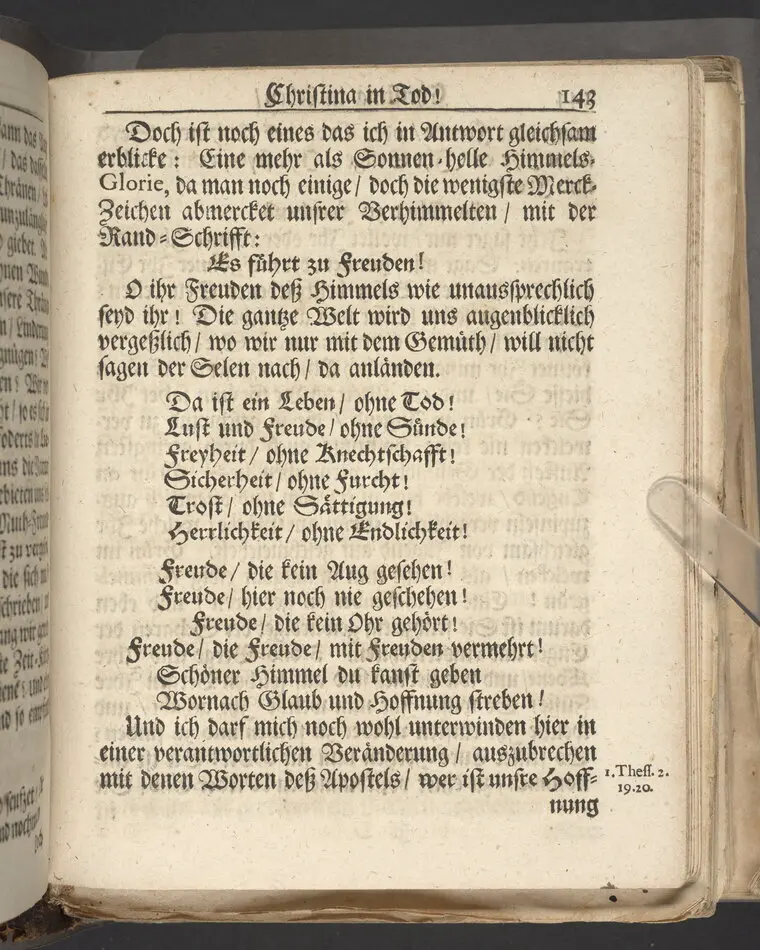 Christina in Tod! 143
Doch ist noch eines das ich in Antwort gleichsam
erblicke: Eine mehr als Sonnen-helle Himmels-
Glorie, da man noch einige/ doch die wenigste Merck-
Zeichen abmercket unsrer Verhimmelten/ mit der
Rand-Schrifft:
Es führt zu Freuden!
O ihr Freuden deß Himmels wie unaussprechlich
seyd ihr! Die gantze Welt wird uns augenblicklich
vergeßlich/ wo wir nur mit dem Gemüth/ will nicht
sagen der Selen nach/ da anländen.
Da ist ein Leben/ ohne Tod!
Lust und Freude/ ohne Sünde!
Freyheit/ ohne Knechtschafft!
Sicherheit/ ohne Furcht!
Trost/ ohne Sättigung!
Herrlichkeit/ ohne Endlichkeit!
Freude/ die kein Aug gesehen!
Freude/ hier noch nie geschehen!
Freude/ die kein Ohr gehört!
Freude/ die Freude/ mit Freuden vermehrt!
Schöner Himmel du kanst geben
Wornach Glaub und Hoffnung streben!
Und ich darf mich noch wohl unterwinden hier in
einer verantwortlichen Veränderung/ auszubrechen
mit denen Worten deß Apostels/ wer ist unsre Hoff-
1. Thess. 2.
19.20.
nung